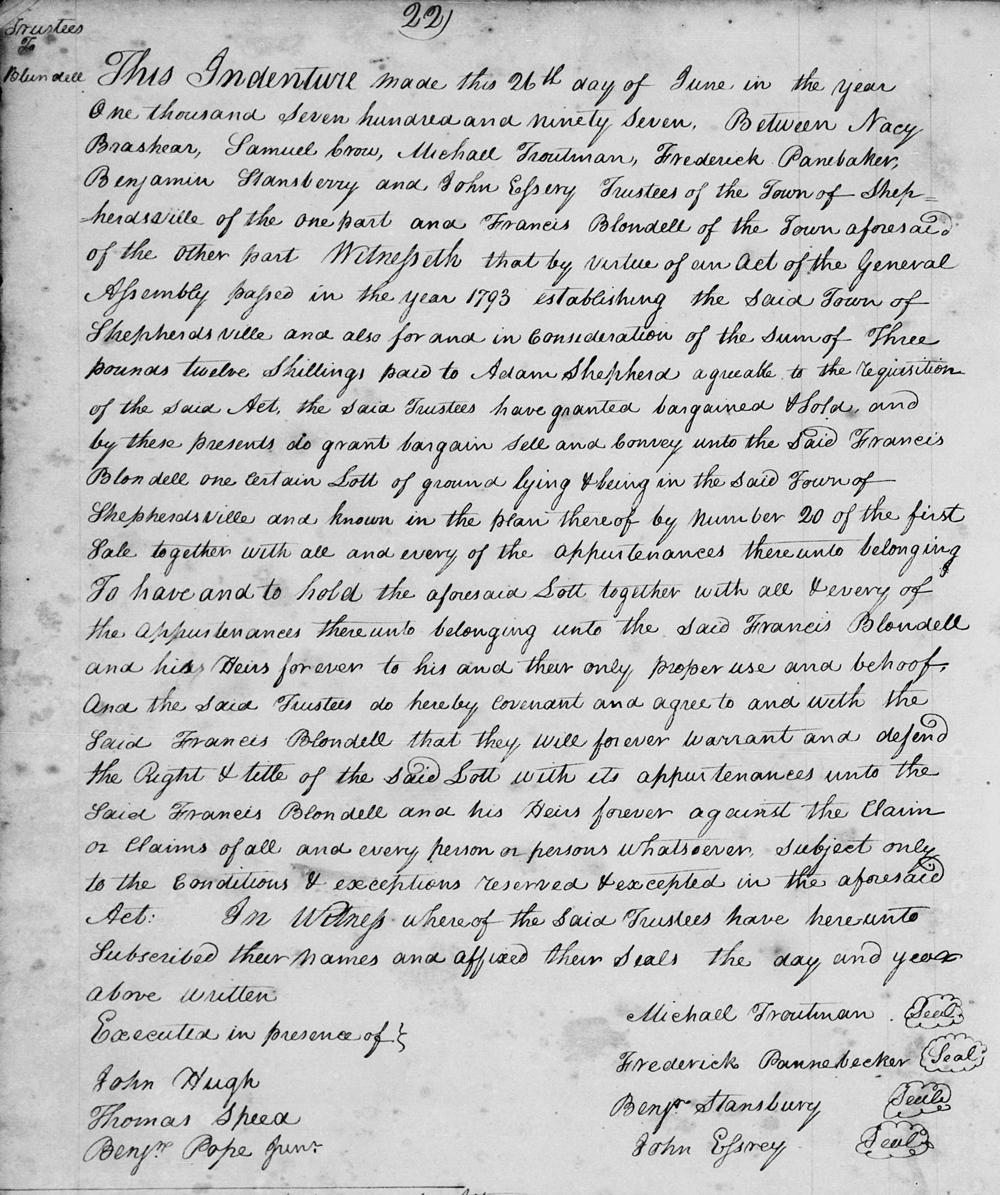 22)
Trustees
To
Blundell
This Indenture made this 26th day of June in the year
One thousand Seven hundred and ninety Seven, Between Nacy
Brashear, Samuel Crow, Michael Troutman, Frederick Panebaker,
Benjamin Stansberry and John Essery Trustees of the Town of Shep=
=herdsville of the one part and Francis Blondell of the Town aforesaid
of the other part Witnesseth that by virtue of an Act of the General
Assembly passed in the year 1793 establishing the Said Town of
Shepherdsville and also for and in Consideration of the Sum of Three
pounds twelve Shillings paid to Adam Shepherd agreeable to the requisition
of the Said Act, the Said Trustees have granted bargained & Sold, and
by these presents do grant bargain Sell and Convey unto the Said Francis
Blondell one Certain Lott of ground lying & being in the Said Town of
Shepherdsville and known in the plan thereof by Number 20 of the first
Sale together with all and every of the appurtenances thereunto belonging
To have and to hold the aforesaid Lott together with all & every of
the appurtenances thereunto belonging unto the Said Francis Blondell
and his Heirs forever to his and their only proper use and behoof.
And the Said Trustees do hereby Covenant and agree to and with the
Said Francis Blondell that they will forever warrant and defend
the Right & title of the Said Lott with its appurtenances unto the
Said Francis Blondell and his Heirs forever against the Claim
or Claims of all and every person or persons whatsoever, Subject only
to the Conditions & exceptions reserved & excepted in the aforesaid
Act: In Witness whereof the Said Trustees have hereunto
Subscribed their Names and affixed their Seals the day and year
above written
Executed in presence of }
John Hugh
Thomas Speed
Benjn. Pope Junr.
Michael Troutman. Seal
Frederick Pannebecker Seal
Benjn. Stansbury Seal
John Essrey Seal